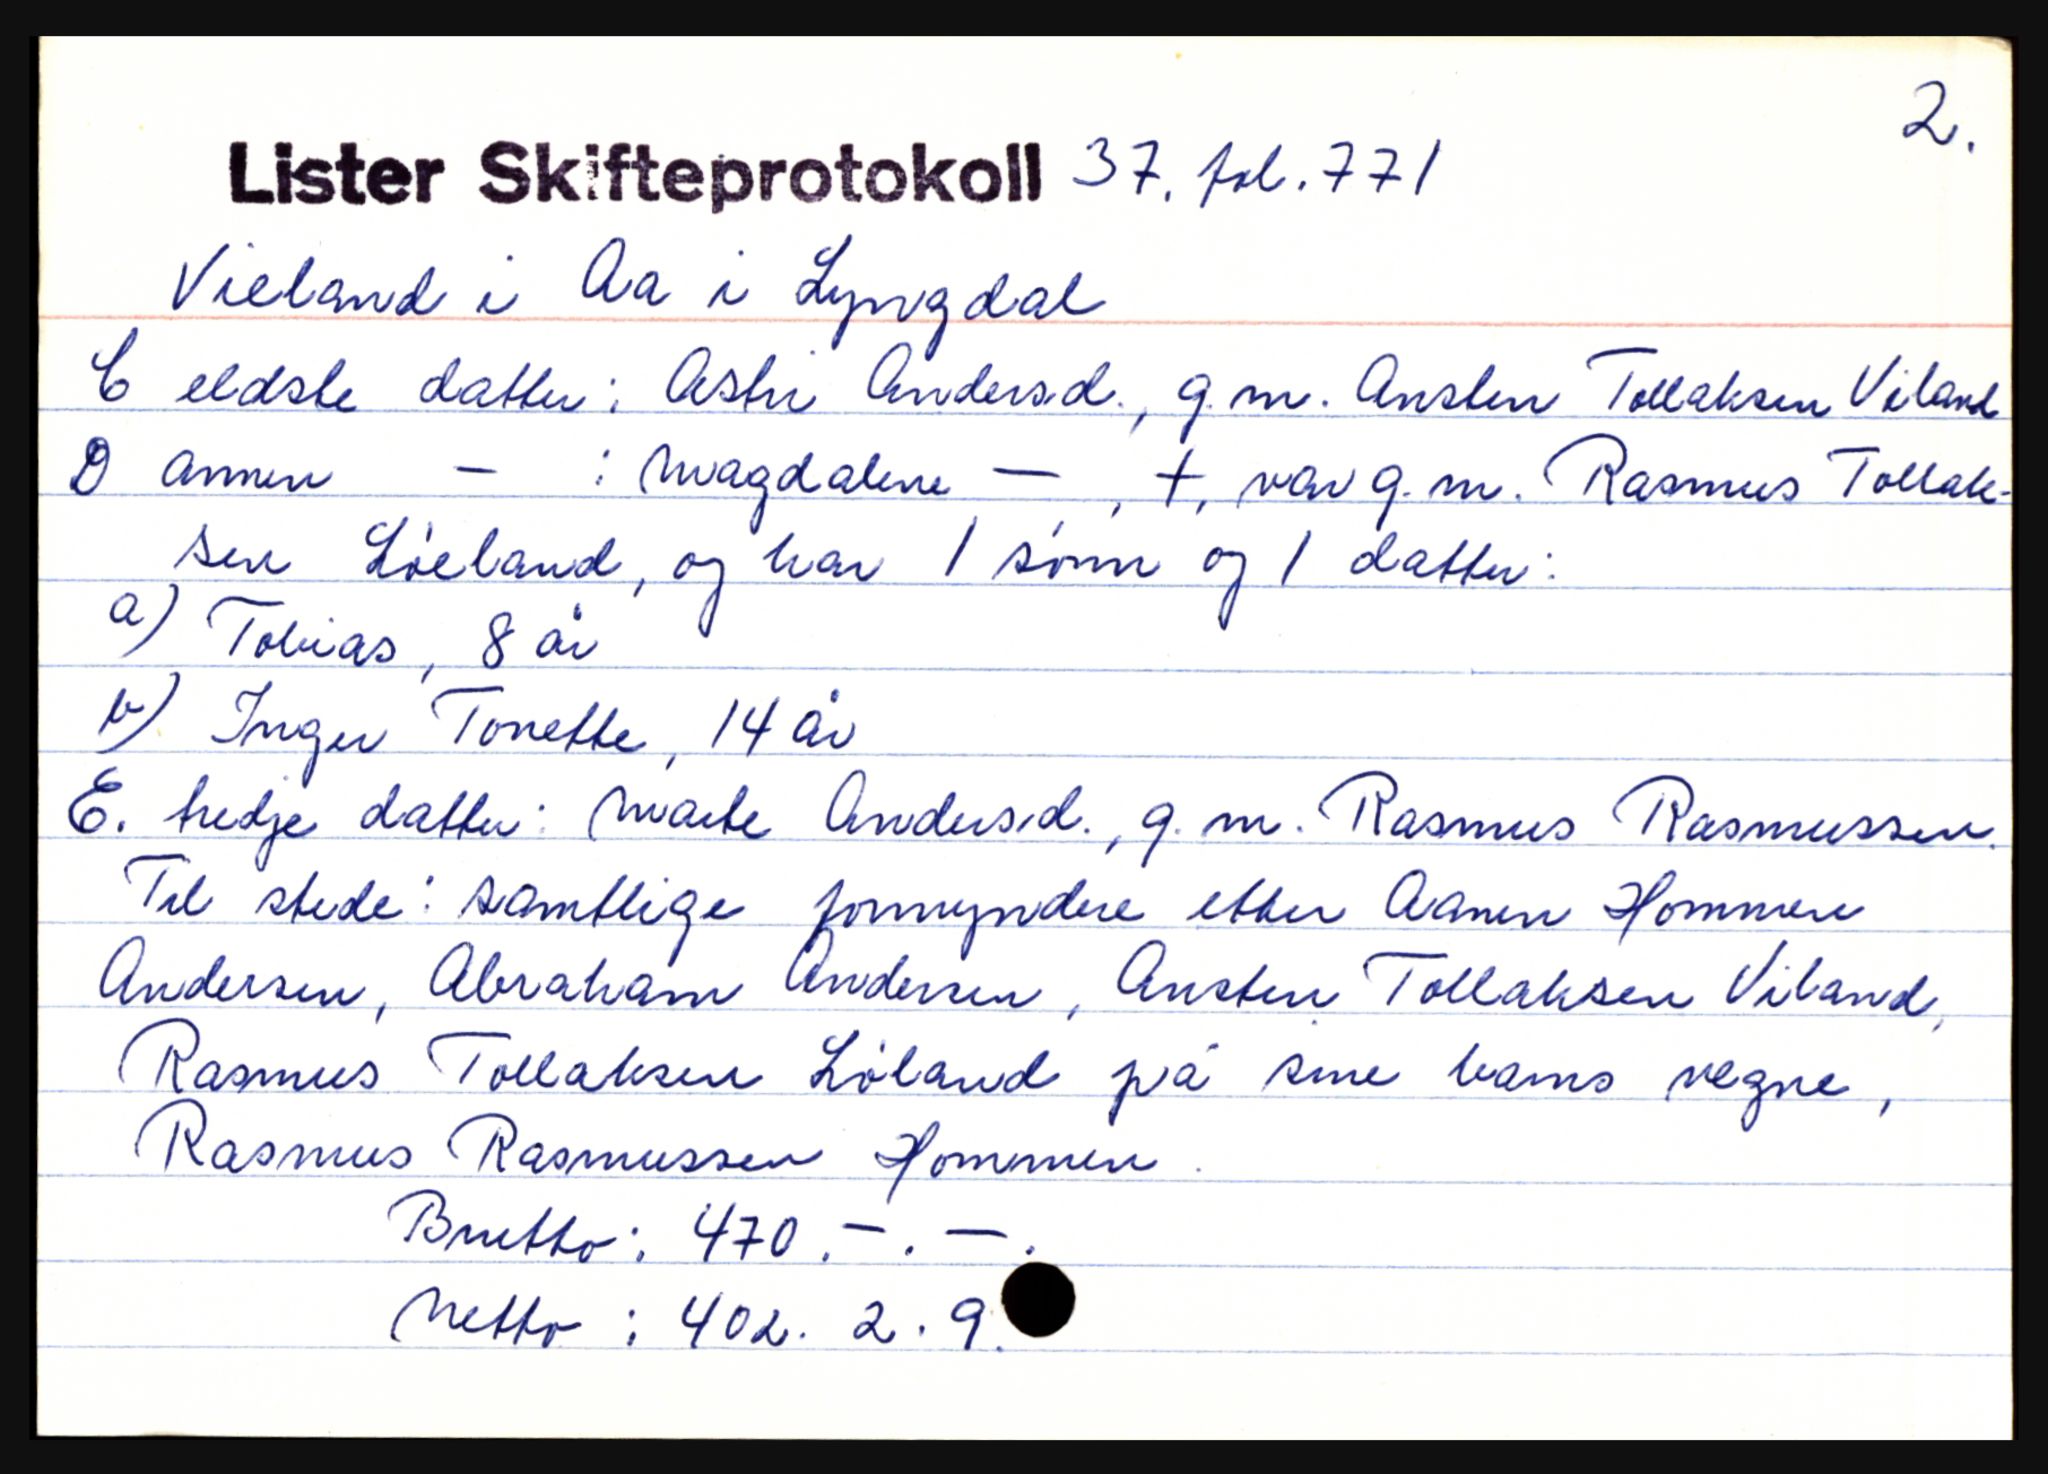 2.
Lister Skifteprotokoll 37. fol. 771
Vieland i Aa i Lyngdal
C eldste datter: Astri Andersd., g.m. Ansten Tollaksen Viland
D annen - : Magdalene —, +, var g.m. Rasmus Tollak-
sen Löeland, og har 1 sönn og 1 datter:
a) Tobias, 8 år
b) Inger Tonette, 14 år
E. tredje datter: Marte Andersd., g.m. Rasmus Rasmussen.
Til stede: samtlige formyndere etter Aanen Hommen
Andersen, Abraham Andersen, Ansten Tollaksen Viland,
Rasmus Tollaksen Löland på sine barns vegne,
Rasmus Rasmussen Hommen.
Brutto: 470.-.-.
Netto: 402. 2. 9.